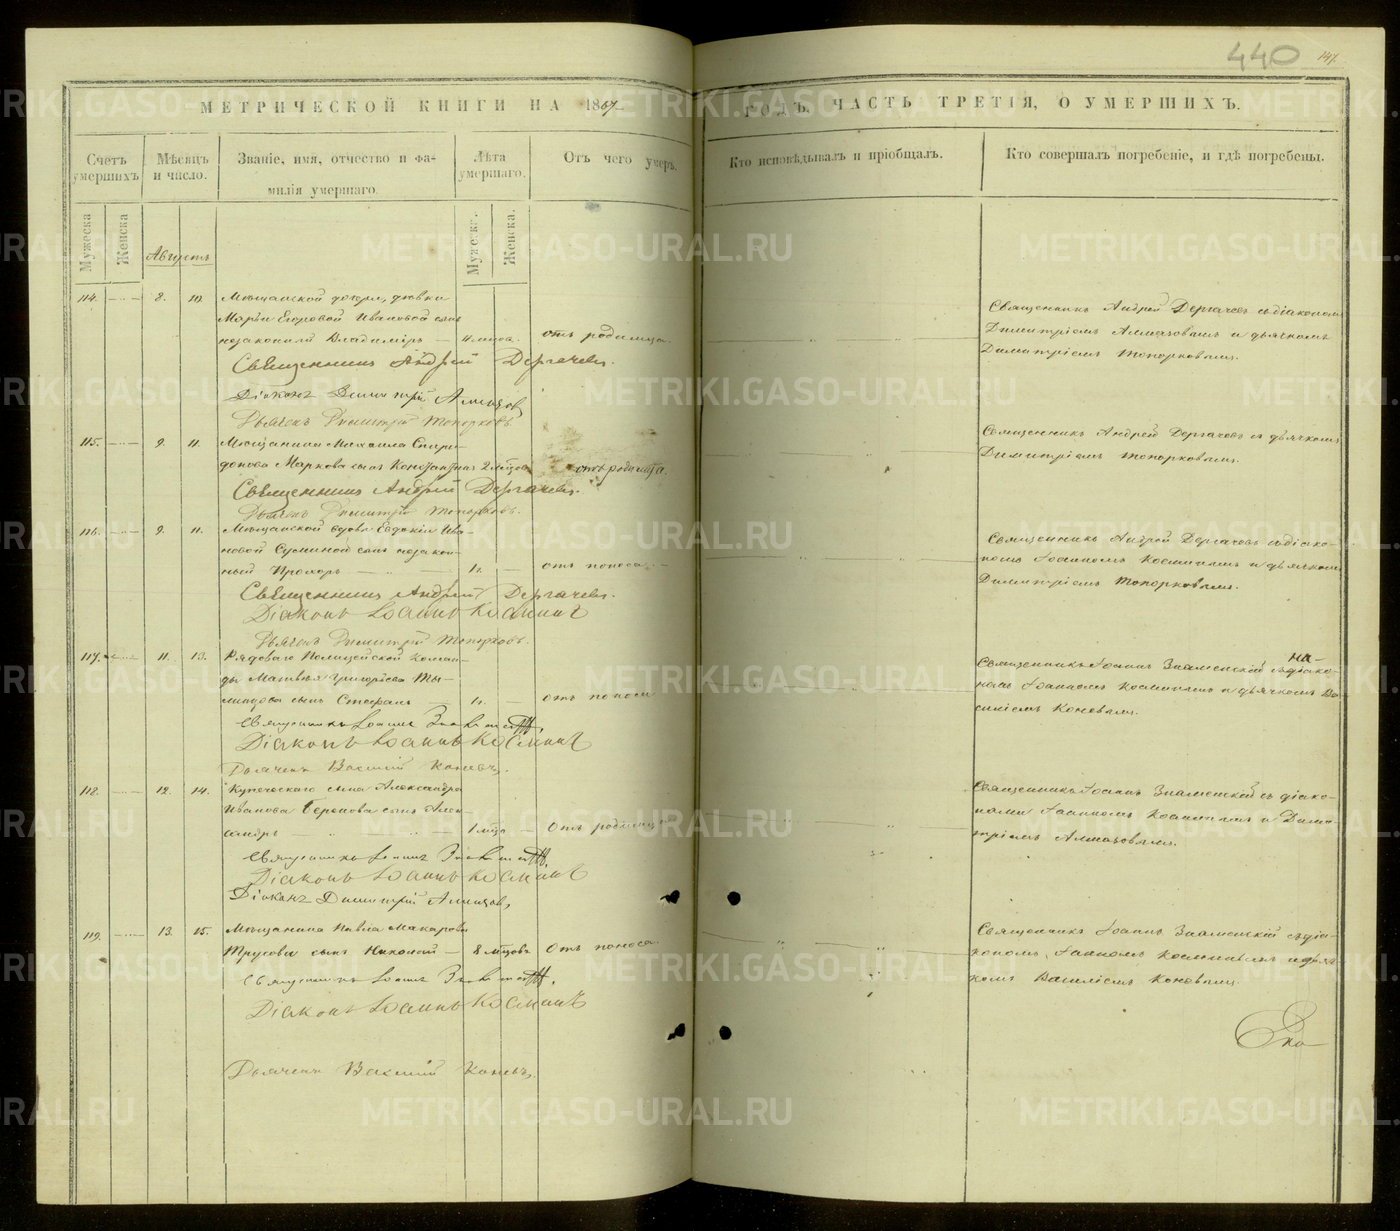 440
147.
МЕТРИЧЕСКОЙ КНИГИ НА 1867
ГОДЪ, ЧАСТЬ ТРЕТІЯ, О УМЕРШИХЪ.
Счетъ умершихъ.
Мѣсяцъ и число.
Званіе, имя, отчество и фамилія умершаго.
Лѣта умершаго.
Отъ чего умеръ.
Кто исповѣдывалъ и пріобщалъ.
Кто совершалъ погребеніе, и гдѣ погребены.
Мужеска
Женска
Августъ
Мужеска.
Женска.
114. 8. 10. Мѣщанской дочери, дѣвки
Марьи Егоровой Ивановой сынъ
незаконный Владиміръ 4 мѣсца. отъ родимца.
Священникъ Андрей Дергачевъ съ діакономъ
Димитріемъ Алмазовымъ и дьячкомъ
Димитріемъ Топорковымъ.
Священникъ Андрей Дергачевъ.
Діаконъ Димитрій Алмазовъ
Дьячекъ Димитрій Топорковъ.
115. 9. 11. Мѣщанина Михаила Спиридонова
Маркова сынъ Константинъ 2 мѣсцовъ отъ родимца.
Священникъ Андрей Дергачевъ съ дьячкомъ
Димитріемъ Топорковымъ.
Священникъ Андрей Дергачевъ.
Дьячекъ Димитрій Топорковъ.
116. 9. 11. Мѣщанской вдовы Евдокіи Ива-
новой Суминой сынъ незакон-
ный Прохоръ 1г. отъ поноса.
Священникъ Андрей Дергачевъ съ діако-
номъ Іоанномъ Косминымъ и дьячкомъ
Димитріемъ Топорковымъ.
Священникъ Андрей Дергачевъ.
Діаконъ Іоаннъ Косминъ
Дьячекъ Димитрій Топорковъ.
117. 11. 13. Рядоваго Полицейской Коман-
ды Матвѣя Григорьева
сынъ Стефанъ 1г. отъ поноса
Священникъ Іоаннъ Знаменскій съ діако-
номъ Іоанномъ Косминымъ и дьячкомъ Ва-
силіемъ Коневымъ.
Священникъ Іоаннъ Знаменскій
Діаконъ Іоаннъ Косминъ
Дьячекъ Василій Коневъ.
118. 12. 14. Купеческаго сына Александра
Иванова сынъ Алек-
сандръ 1 мѣца отъ родимца
Священникъ Іоаннъ Знаменскій съ діако-
нами Іоанномъ Косминымъ и Дими-
тріемъ Алмазовымъ.
Священникъ Іоаннъ Знаменскій.
Діаконъ Іоаннъ Косминъ
Діаконъ Димитрій Алмазовъ,
119. 13. 15. Мѣщанина Павла Макарова
Трусова сынъ Николай 8 мѣсцовъ отъ поноса.
Священникъ Іоаннъ Знаменскій съ діа-
кономъ Іоанномъ Косминымъ и дьяч-
комъ Василіемъ Коневымъ.
Священникъ Іоаннъ Знаменскій.
Діаконъ Іоаннъ Косминъ
Дьячекъ Василій Коневъ.
METRIKI.GASO-URAL.RU